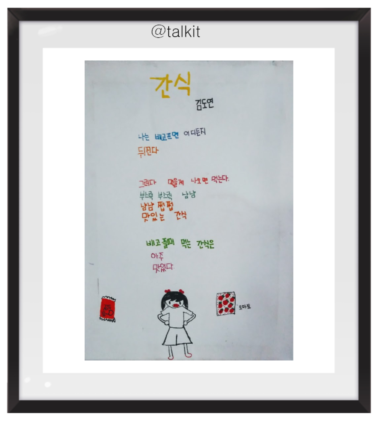 @talkit
간식
김도연
나는 배고프면 어디든지
뒤진다
그러다 먹을게 나오면 먹는다
바삭 바삭 냠냠
냠냠 쩝쩝
맛있는 간식
배고플때 먹는 간식은
아주
맛있다